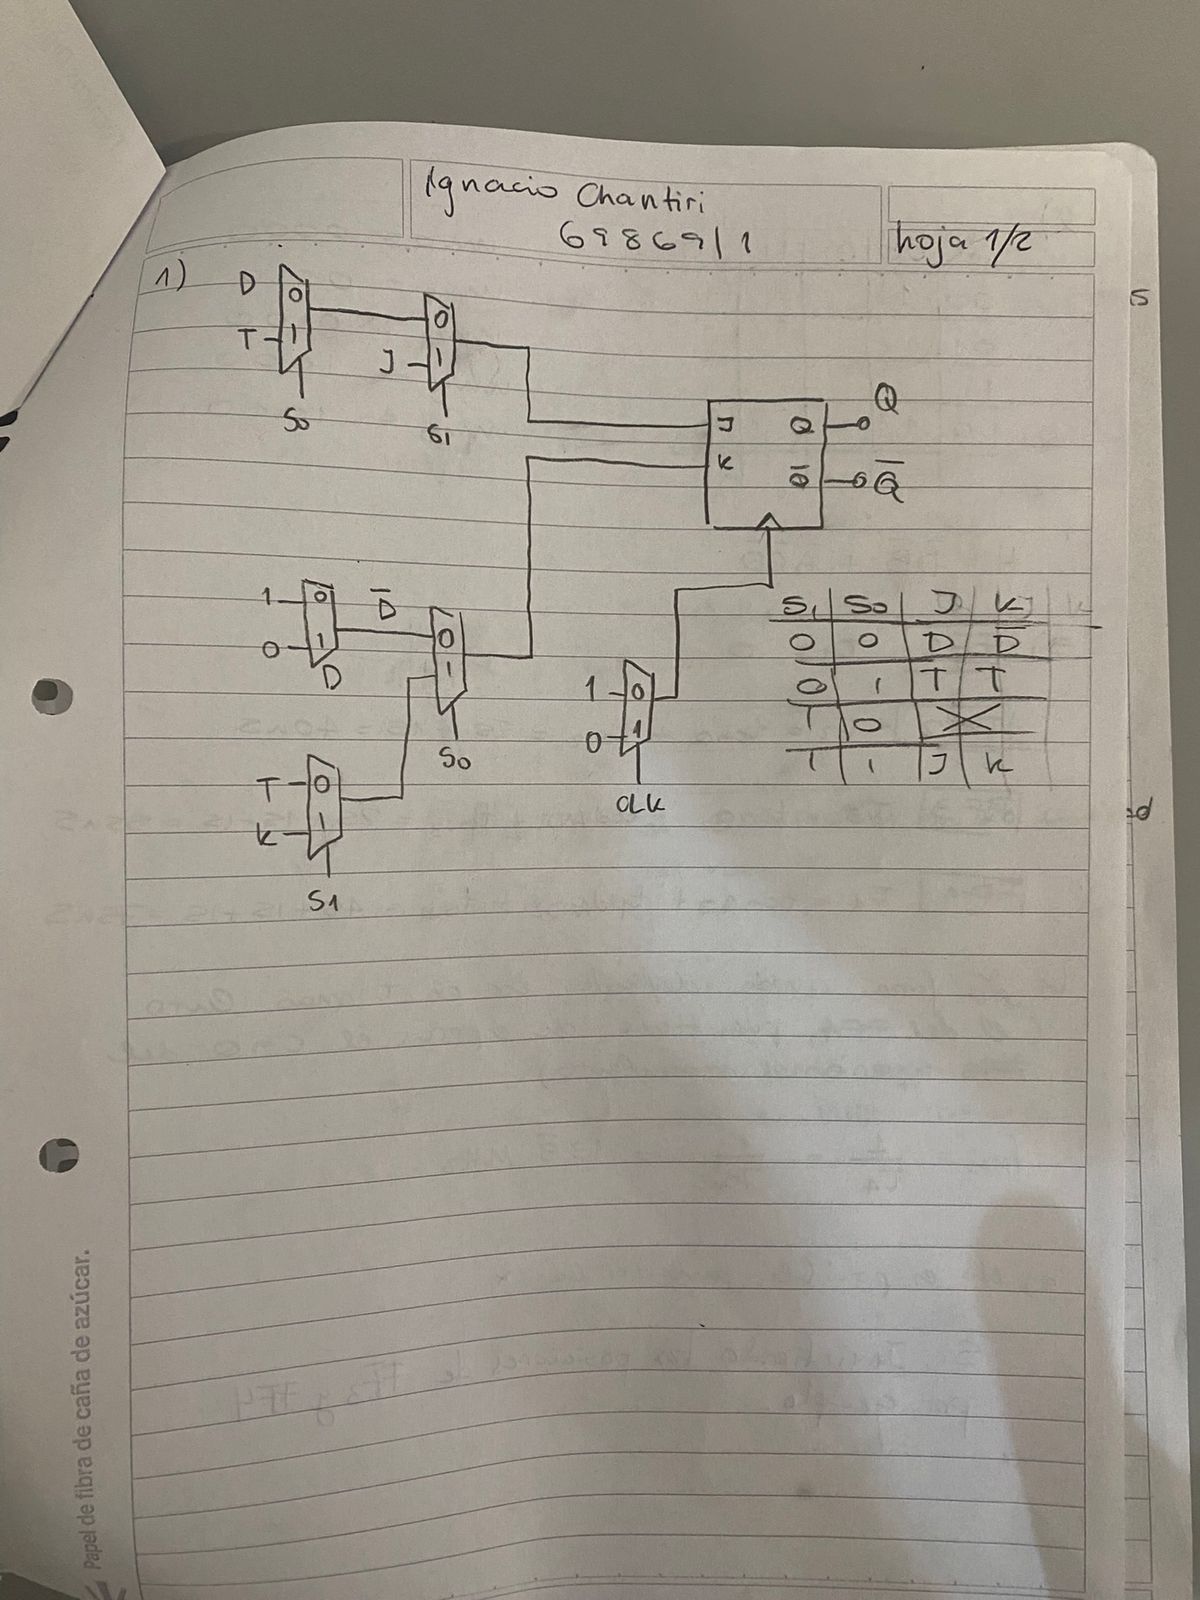 Ignacio Chantiri
69869/1
hoja 1/2
1)
D 0
T 1
S0
0
J 1
S1
J Q Q
K Q̅ Q̅
1 0
0 1
D
D̅
0
1
S0
T 0
K 1
S1
1 0
0 1
CLK
S1 S0 J K
0 0 D D̅
0 1 T T
1 0 X
1 1 J K
Papel de fibra de caña de azúcar.